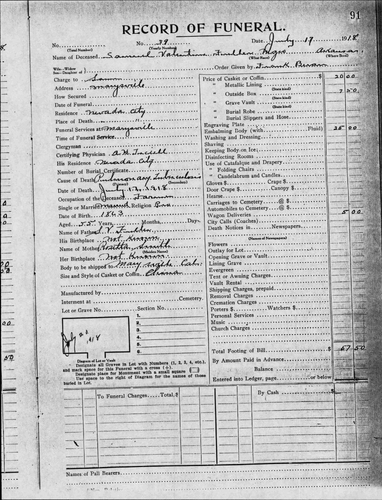 91
RECORD OF FUNERAL.
No. No. 39 Date, July 17 1918
(Total Number) (Yearly Number)
Name of Deceased Samuel Valentine Negro Arkansas
(What Race) (Where Born)
Order Given by Frank
Charge to Same
Address Marysville
How Secured
Date of Funeral
Residence Nevada City
Place of Death
Funeral Services at Marysville
Time of Funeral Service
Clergyman
Certifying Physician
His Residence Nevada City
Number of Burial Certificate
Cause of Death Pulmonary Tuberculosis
Date of Death July 17, 1918
Occupation of the Deceased Farmer
Single or Married Religion
Date of Birth 1863
Aged 55 Years Months, Days
Name of Father S. V.
His Birthplace Not Known
Name of Mother Smith
Her Birthplace Not Known
Body to be shipped to Marysville Cal.
Size and Style of Casket or Coffin
Manufactured by
Interment at Cemetery.
Lot or Grave No. Section No.
Diagram of Lot or Vault
Designate all Graves in Lot with Numbers (1, 2, 3, 4, etc.),
and mark space for this Funeral with a cross (+)
Designate place for Monument with a small square
Use space to right of Diagram for names of those
buried in Lot.
Price of Casket or Coffin 20 00
" Metallic Lining
" Outside Box
" Grave Vault
" Burial Robe
" Burial Slippers and Hose
Engraving Plate
Embalming Body (with Fluid) 25 00
Washing and Dressing
Shaving
Keeping Body on Ice
Disinfecting Rooms
Use of Catafalque and Drapery
" Folding Chairs
" Candelabrum and Candles
Gloves $ Crape $
Door Crape $ Canopy $
Hearse
Carriages to Cemetery @ $
Automobiles to Cemetery @ $
Wagon Deliveries 5 00
City Calls (Coaches)
Death Notices in Newspapers
(Names of Newspapers)
Flowers
Outlay for Lot
Opening Grave or Vault
Lining Grave
Evergreen
Tent or Awning Charges
Vault Rental
Shipping Charges, prepaid
Removal Charges
Cremation Charges
Porters $ Watchers $
Personal Services
Music
Church Charges
Total Footing of Bill 57 50
By Amount Paid in Advance
Balance
Entered into Ledger, page or below
To Funeral Charges, Total, $ By Cash
Names of Pall Bearers.